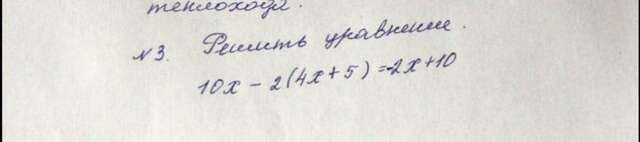 теплохода.
№3. Решить уравнение.
10x - 2(4x+5) = -2x+10